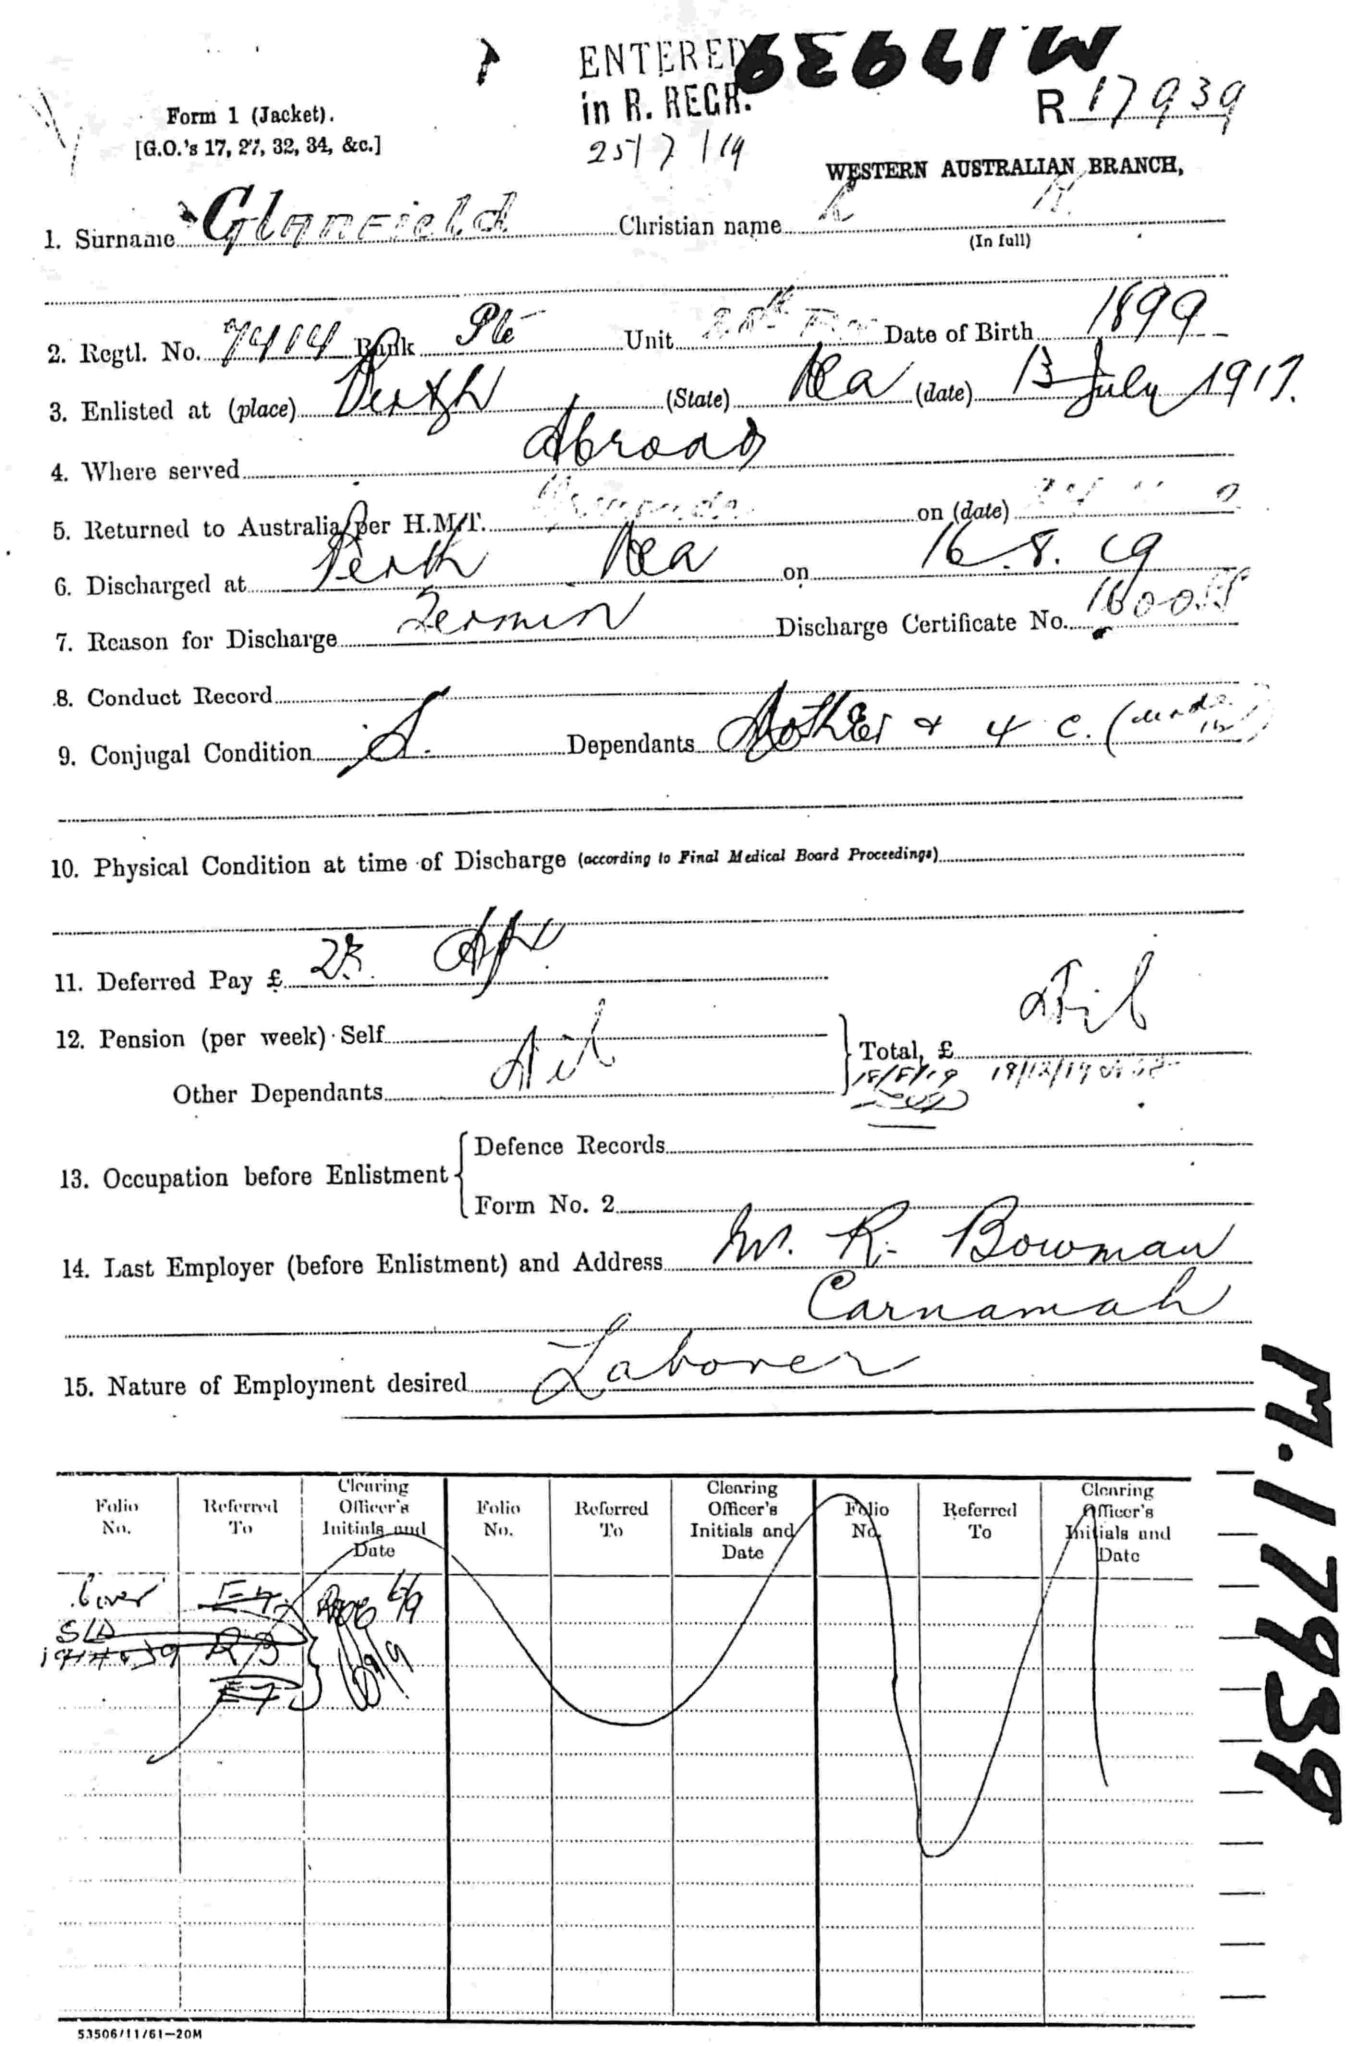 ENTERED
in R. REGR.
25/7/19
M17939
R 17939
Form 1 (Jacket).
[G.O.'s 17, 27, 32, 34, &c.]
WESTERN AUSTRALIAN BRANCH,
1. Surname Glanfield Christian name
(In full)
2. Regtl. No. 7414 Rank Pte Unit 28th Date of Birth 1899
3. Enlisted at (place) Perth (State) (date) 13 July 1917.
4. Where served Abroad
5. Returned to Australia per H.M.T. on (date)
6. Discharged at Perth on 16.8.19
7. Reason for Discharge Termin Discharge Certificate No.
8. Conduct Record
9. Conjugal Condition S. Dependants Mother & 4 C. (under
10. Physical Condition at time of Discharge (according to Final Medical Board Proceedings)
11. Deferred Pay £
12. Pension (per week) Self Nil Total, £ Nil
Other Dependants
13. Occupation before Enlistment Defence Records
Form No. 2
14. Last Employer (before Enlistment) and Address R. Bowman
Carnamah
15. Nature of Employment desired Laborer
M.17939
Folio No. Referred To Clearing Officer's Initials and Date Folio No. Referred To Clearing Officer's Initials and Date Folio No. Referred To Clearing Officer's Initials and Date
Cover
53506/11/61—20M